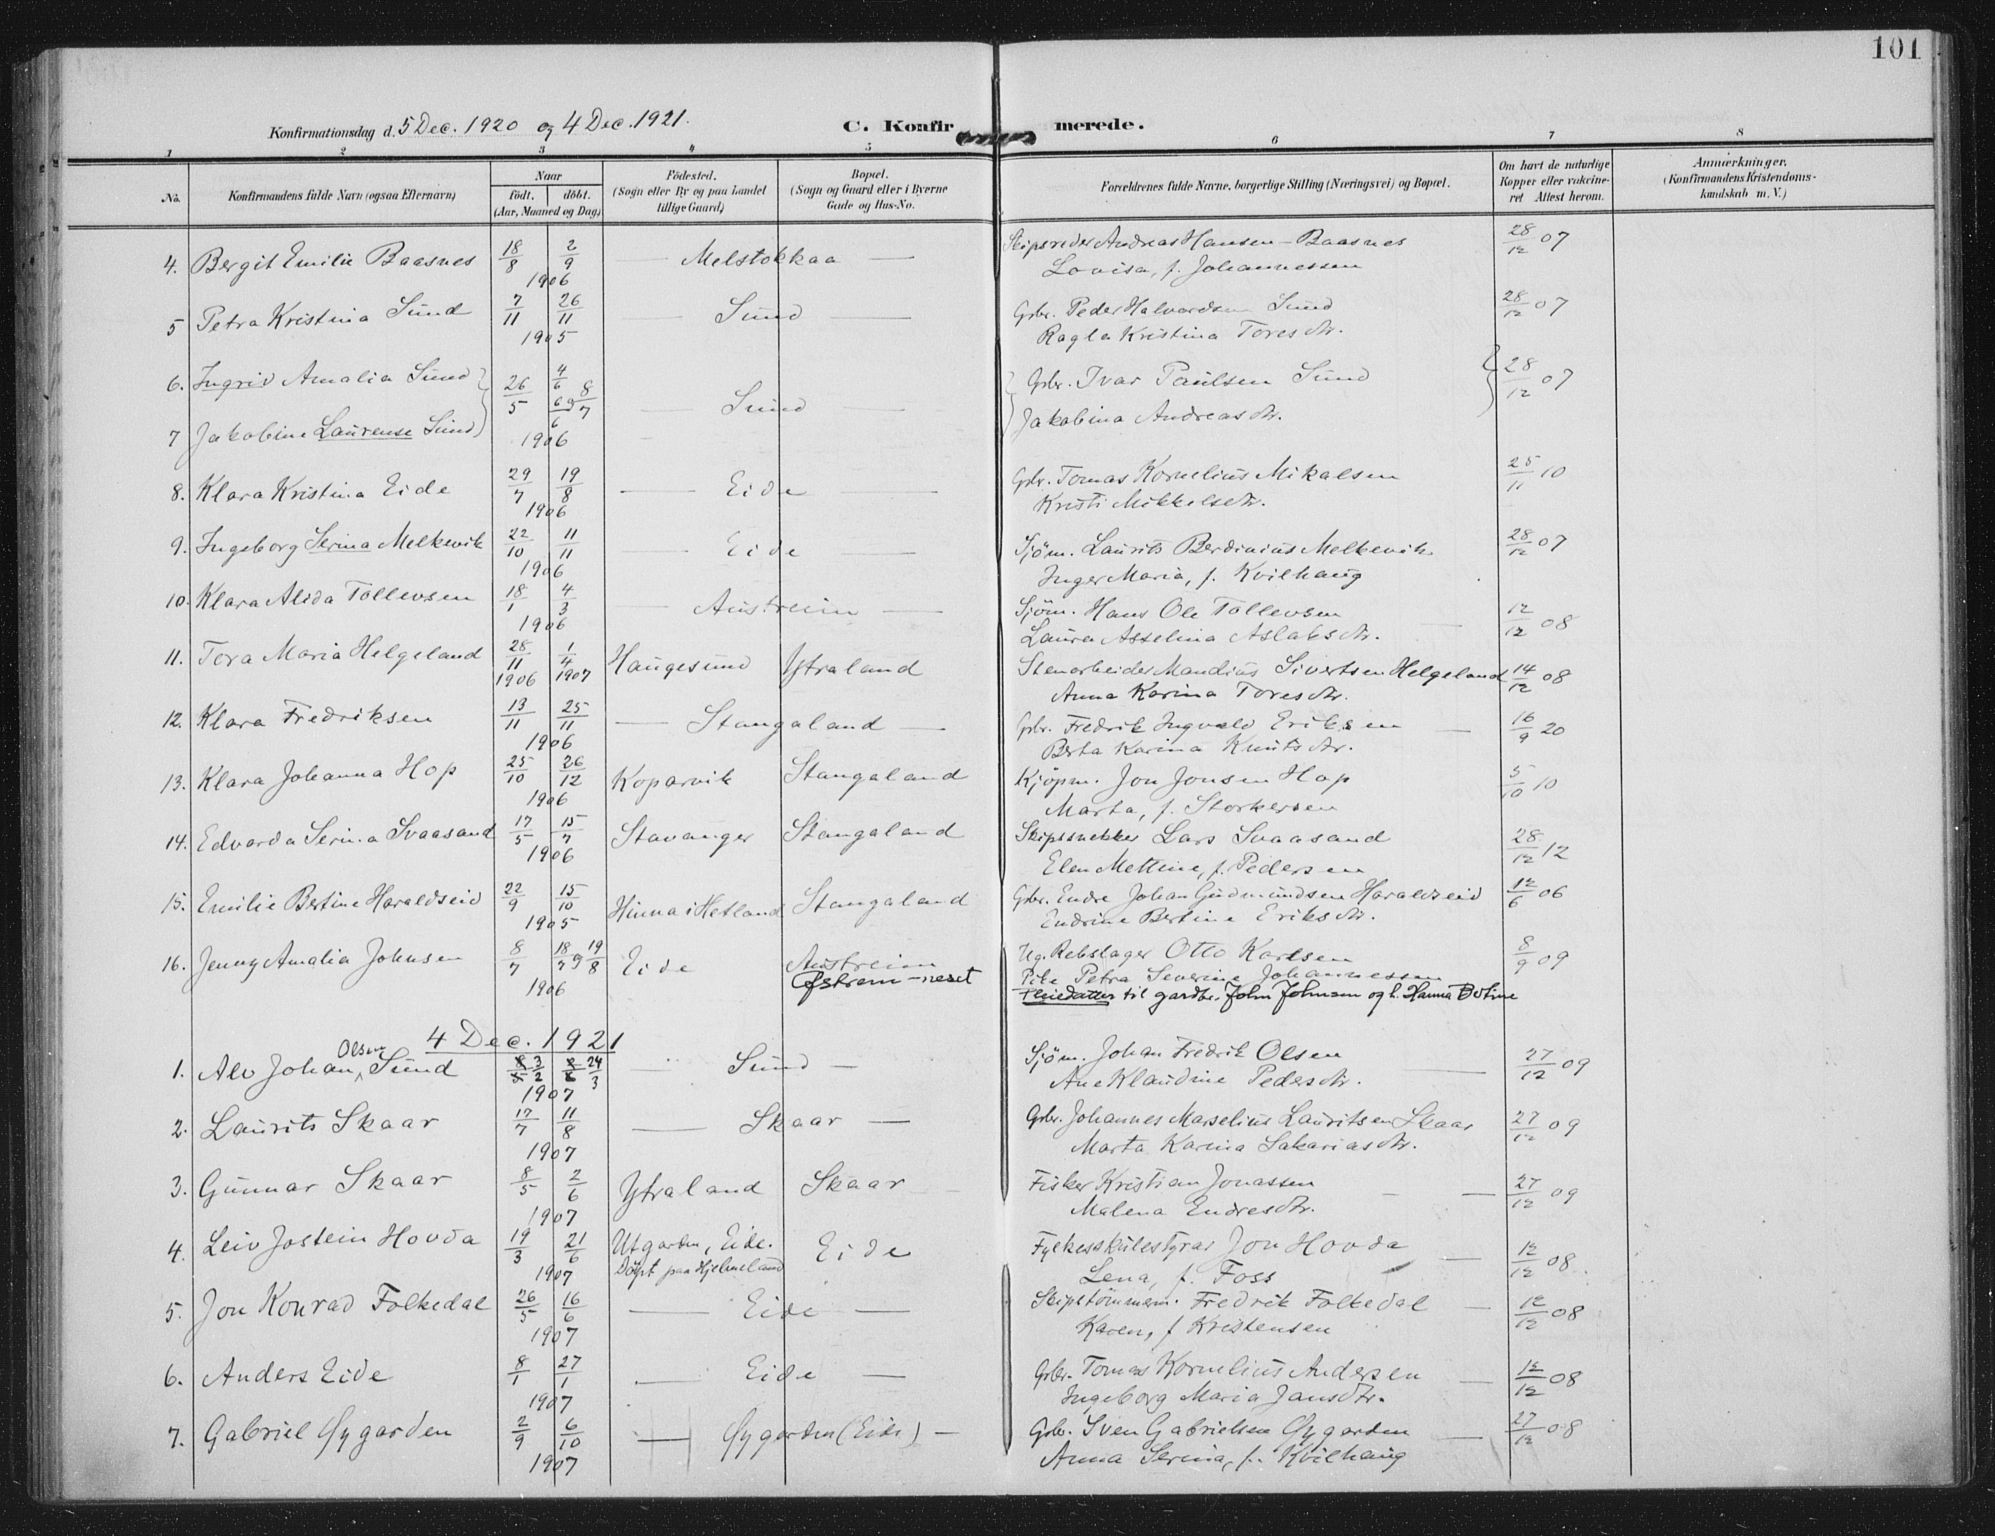 101
Konfirmationsdag d. 5 Dec. 1920 og 4 Dec. 1921. C. Konfirmerede.
1 2 3 4 5 6 7 8
No. Konfirmandens fulde Navn (ogsaa Efternavn) Naar födt. döbt. (Aar, Maaned og Dag) Födested. (Sogn eller By og paa Landet tillige Gaard) Bopæl. (Sogn og Gaard eller i Byerne Gade og Hus-No. Forældrenes fulde Navne, borgerlige Stilling (Næringsvei) og Bopæl. Om havt de naturlige Kopper eller vakcineret Attest herom. Anmærkninger. (Konfirmandens Kristendomskundskab m. V.)
4. Bergit Emilie Baasnes 18/8 2/9 1906 — Melstokkaa — Skipsreder Andreas Hansen - Baasnes 28/12 07
Lovisa, f. Johannessen
5 Petra Kristina Sund 7/11 26/11 1905 — Sund — Gbr. Peder Halvardsen Sund 28/12 07
Ragla Kristina Toresdtr.
6. Ingrid Amalia Sund 26/5 4/6 1906 — Sund — Gbr. Ivar Paulsen Sund 28/12 07
7 Jakobine Laurense Sund 6/6 og 8/7 Jakobina Andreasdtr.
8. Klara Kristina Eide 29/7 19/8 1906 — Eide — Gbr. Tomas Kornelius Mikalsen 25/11 10
Kristi Mikkelsdtr.
9. Ingeborg Serina Melkevik 22/10 11/11 1906 — Eide — Sjøm. Laurits Berdinius Melkevik 28/12 07
Inger Maria, f. Kvilhaug
10. Klara Alida Tollevsen 18/1 4/3 1906 — Austreim — Sjøm. Hans Ole Tollevsen 12/12 08
Laura Asselina Aslaksdtr.
11. Tora Maria Helgeland 28/11 1906 1/4 1907 Haugesund Ytraland Stenarbeider Mandius Sivertsen Helgeland 14/12 08
Anna Karina Toresdtr.
12. Klara Fredriksen 13/11 25/11 1906 — Stangaland — Gbr. Fredrik Ingvald Eriksen 16/9 20
Berta Karina Knutsdtr.
13. Klara Johanna Hop 25/10 26/12 1906 Koparvik Stangaland Kjøpm. Jon Jonsen Hop 5/10 10
Marta, f. Storkersen
14. Edvarda Serina Svaasand 17/5 15/7 1906 Stavanger Stangaland Skipssnekker Lars Svaasand 28/12 12
Elen Mettine, f. Pedersen
15. Emilie Bertine Haraldseid 22/9 15/10 1905 Hinna i Hetland Stangaland Gbr. Endre Johan Gudmundsen Haraldseid 12/6 06
Endrine Bertine Eriksdtr.
16. Jenny Amalia Johnsen 8/7 18/7 og 19/8 1906 Eide Austreim Ug. Rebslager Otto Karlsen 8/9 09
Østrem-neset Pike Petra Severine Johannessen
Pleiedatter til gardbr. John Johnsen og h. Hanna Botine
4 Dec. 1921
1. Alv Johan Olsen Sund 3/2 24/3 1907 — Sund — Sjøm. Johan Fredrik Olsen 27/12 09
Ane Klaudine Pedersdtr.
2. Laurits Skaar 17/7 11/8 1907 — Skaar — Gbr. Johannes Marselius Lauritsen Skaar 27/12 09
Marta Karina Sakariasdtr.
3. Gunnar Skaar 8/5 2/6 1907 Ytraland Skaar Fisker Kristian Jonassen 27/12 09
Malena Endresdtr.
4. Leiv Jostein Hovda 19/3 21/6 1907 Utgarden, Eide. Eide Fylkesskulestyrar Jon Hovda 12/12 08
Döypt paa Hjelmeland Lena, f. Foss
5. Jon Konrad Folkedal 26/5 16/6 1907 — Eide — Skipstömmerm. Fredrik Folkedal 12/12 08
Karen, f Kristensen
6. Anders Eide 8/1 27/1 1907 — Eide — Gbr. Tomas Kornelius Andersen 12/12 08
Ingeborg Maria Jansdtr.
7. Gabriel Øygarden 2/9 6/10 1907 — Øygarden (Eide) — Gbr. Sven Gabrielsen Øygarden 27/12 08
Anna Serina, f. Kvilhaug